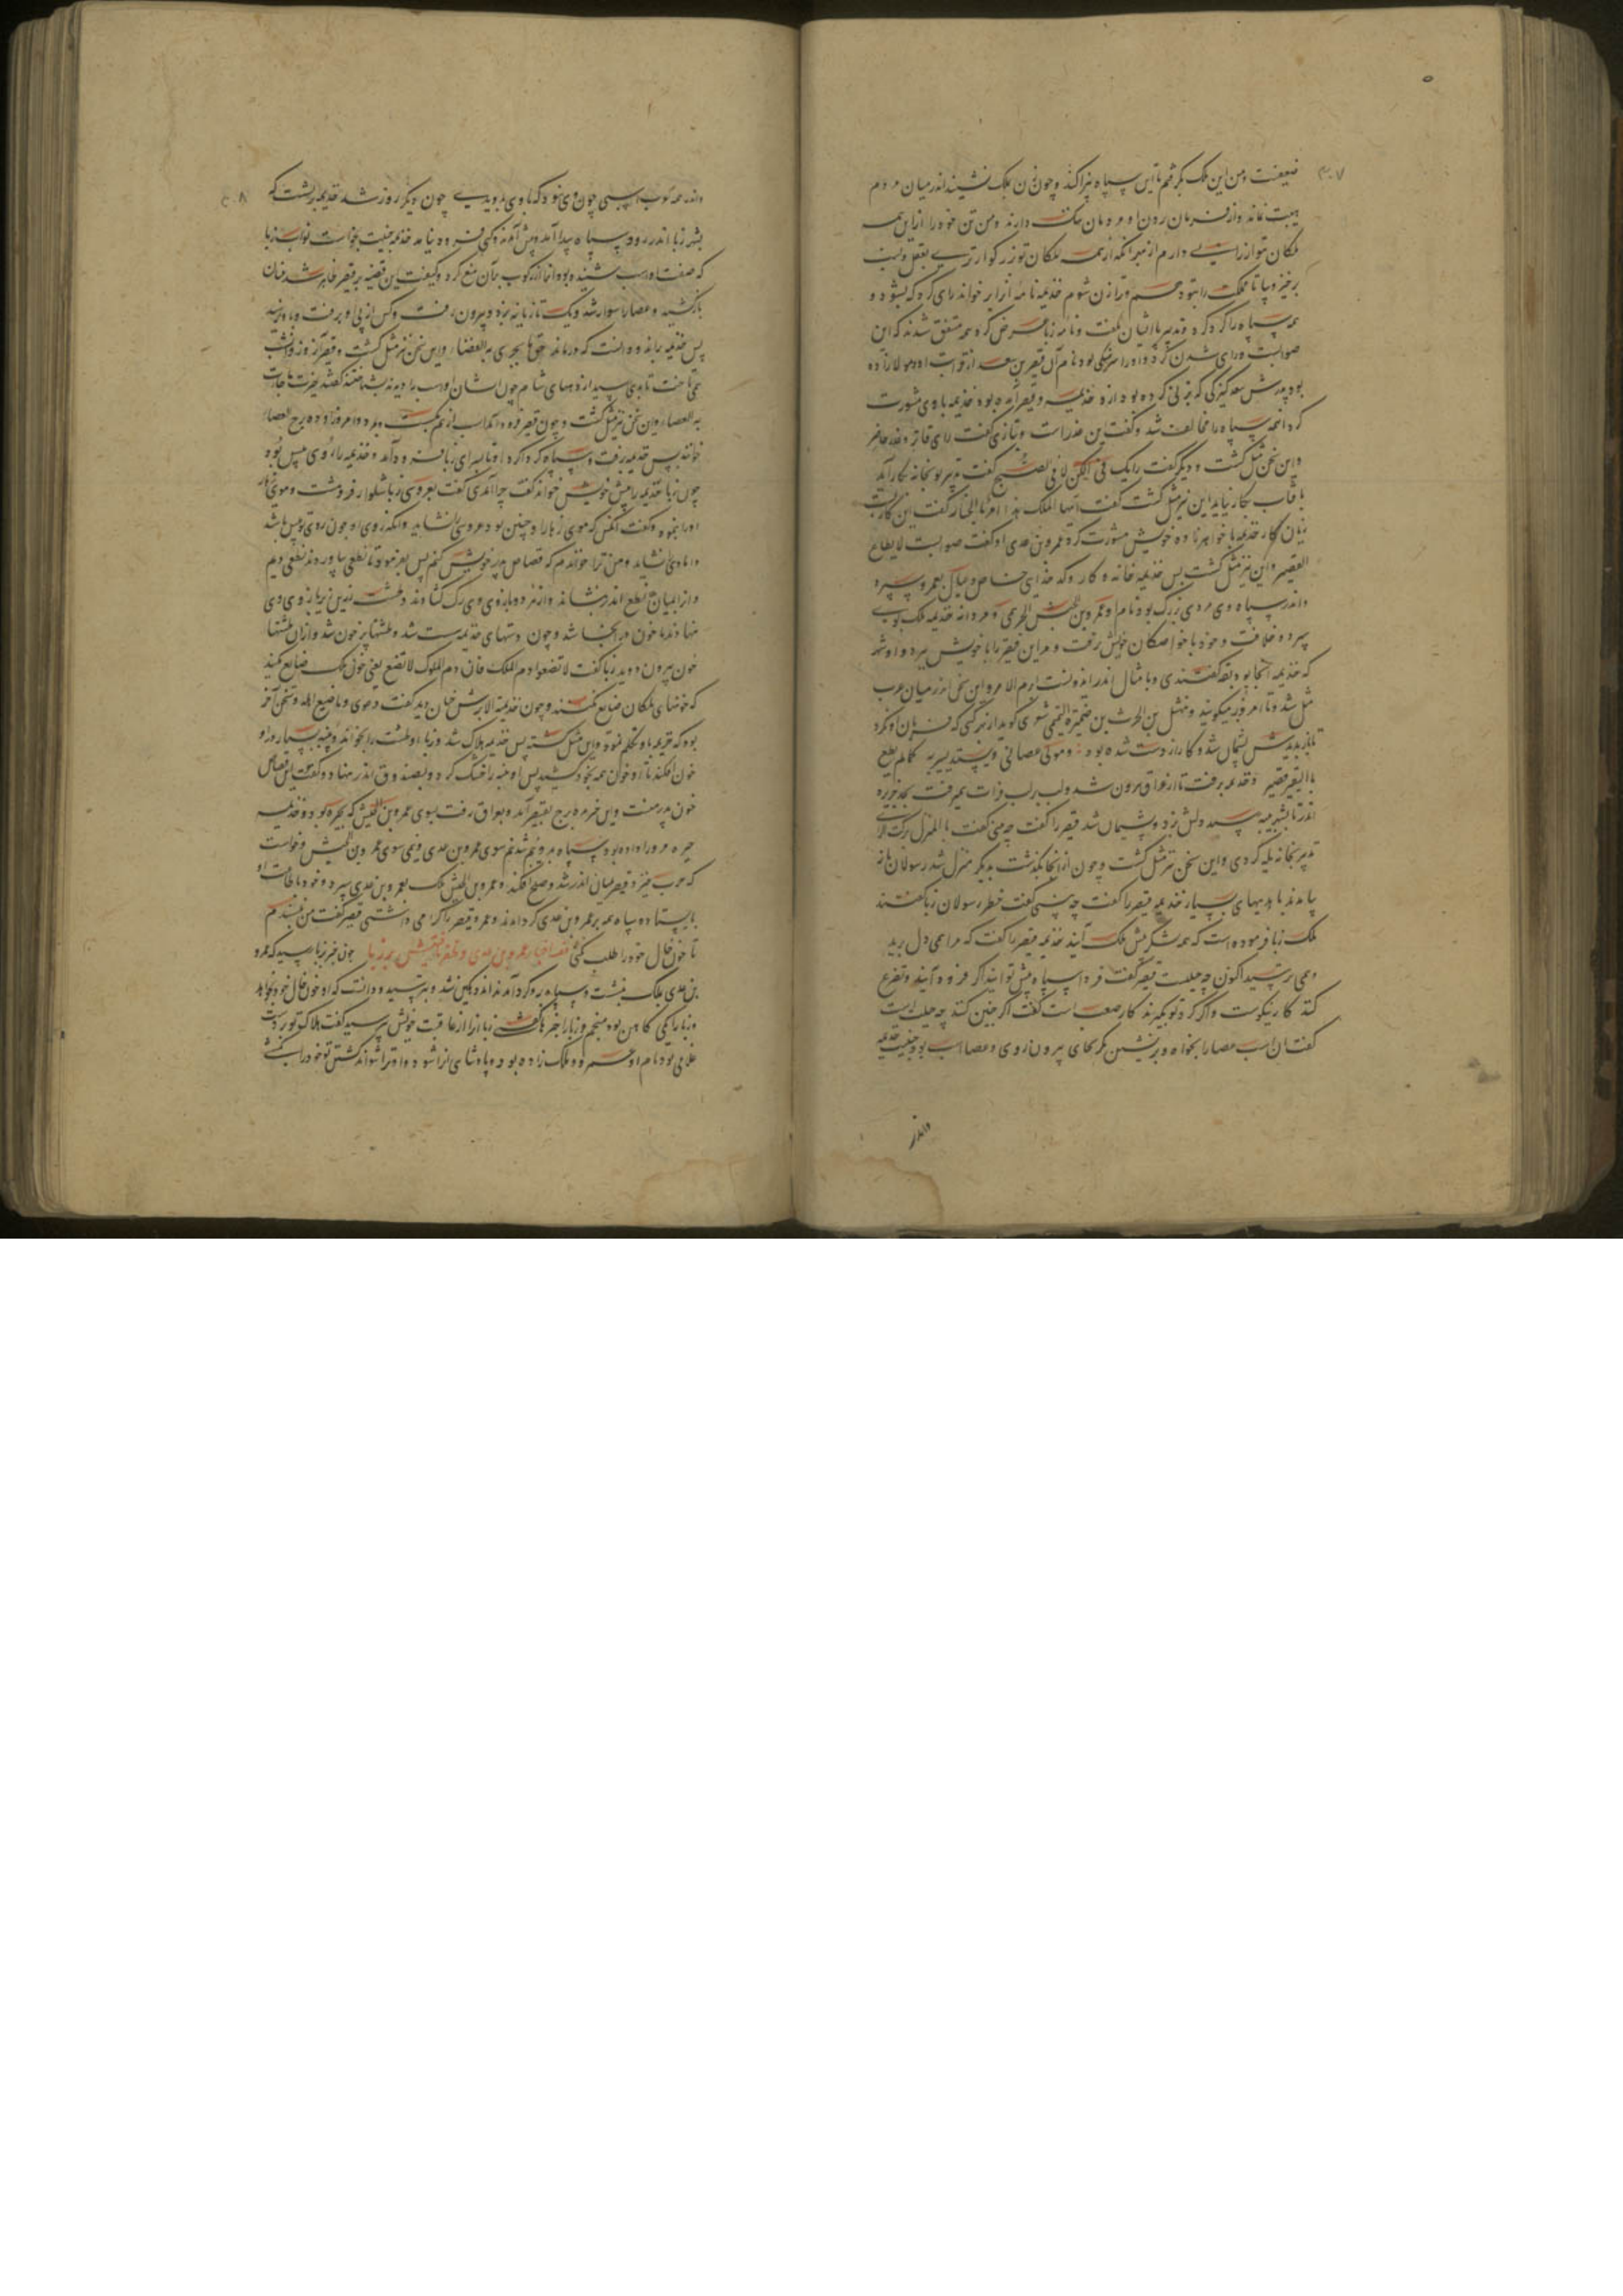 ۴۰۷
ضعیفست ومن این ملک بگرفتم تا این سپاه نپراکند وچون زن بملک نشیند اندر میان مردم
هیبت نماند واز فرمان زن او مردمان ننگ دارند ومن تن خود را ازین همه
ملکان متواتر ایی دارم از مهر آنکه از همه ملکان تو بزرگوارتری بعقل ونسب
برخیز وبیا تا مملکت را بتو دهم وترا زن شوم خذیمه نامه او برخواند رای کرد که بشود و
همه سپاه را گرد کرد وتدبیر با ایشان بگفت ونامه زبا عرض کرد همه متفق شدند که این
صوابست ورای شدن کرد واورا سرهنگی بود نام آن قیصر بن سعد از توراب اودمولا زاده
بود پدرش سعد کنیزکی که بزنی کرده بود از خذیمه وقیصر آمده بود خذیمه باوی مشورت
کرد آنهمه سپاه را مخالف شد وگفت این غدر است وبتازی گفت رای فاتر وغدر حاضر
واین سخن مثل گشت و دیگر گفت رایک فی الکن لا فی الضح گفت تدبیر تو بخانه بکار آید
بآفتاب بکار نیاید این نیز مثل گشت گفت ایها الملک هذا امر النار گفت این کاریست
زنان کار خذیمه با خواهرزاده خویش مشورت کرد عمرو بن عدی او گفت صوابست لایطاع
القصیر واین نیز مثل گشت پس خذیمه خانه وکار وکدخدای خاص وعیال بعمرو سپرد
واندر سپاه وی مردی بزرگ بود نام او عمرو بن الجش الجرمی ومردانه خذیمه ملک بوی
سپرد وخلافت وخود با خواصگان خویش برفت ومر این قیصر را با خویش ببرد واو شهر
که خذیمه آنجا بود بقه گفتندی وبامثال اندر اندرست ابرم الامر واین سخن اندر میان عرب
مثل شد وتا امروز میگویند ونهشل بن الحرث بن ضمرة التمیمی شعری گوید از بهر کسی که فرمان او نکرد
تا باز بدید پشیمان شد وکار از دست شده بود : ومولی عصانی واستبد برأیه کما لم یطع
بالبقتین قصیر وخذیمه برفت تا از عراق برون شد ولب لب فرات همی رفت بحد جزیره
اندر تا بشهر میه رسید دلش بزد وپشیمان شد قیصر را گفت چه بینی گفت بالمنزل ترکت الرای
تدبیر بخانه یله کردی واین سخن نیز مثل گشت وچون از آنجا بگذشت بدیگر منزل شد رسولان زبا
بیامدند با هدیهای بسیار خذیمه قیصر را گفت چه بینی گفت خطر رسولان زبا گفتند
ملک زبا فرموده است که همه لشکر پیش ملک آیند خذیمه قیصر را گفت که مرا همی دل برید
وهمی ترسید اکنون چه حیلست قیصر گفت فردا سپاه پیش تو آیند اگر فرود آیند وتضرع
کنند کار نیکوست واگر گرد تو بگیرند کار صعب است گفت اگر چنین کنند چه حیله است
گفت آن اسب عصا را بخواه وبرنشین مگر بجای بیرون روی وعصا اسب بود جنیبت خذیمه
واندر
۴۰۸
واندر همه عرب اسبی چون وی نبود که با وی بدویدی چون دیگر روز شد خذیمه برنشست که
بشهر زبا اندر رود سپاه پیدا آمد وپیش آمدند وکس فرود نیامد خذیمه جنیبت بخواست نواب زبا
که صفت اسب شنیده بودند از رکوب بر آن منع کرد وکیفیت این قضیه بر قیصر ظاهر شد عنان
بازکشید وعصا را سوار شد ویک تازیانه بزد وبیرون رفت وکس از پی او برفت ودر نرسید
پس خذیمه بماند ودانست که درماند حقا ما تجری به العصا واین سخن نیز مثل گشت وقیصر آن روز وآن شب
همی تاخت تا بدیهی رسید از دیههای شام چون ایشان اسب را دیدند بشناختند گفتند خیرت ما جاءت
به العصا واین سخن نیز مثل گشت وچون قیصر فرود آمد اسب از هم بگسست وبمرد وامروز او ده برج العصا
خوانند پس خذیمه برفت وسپاه گرداگرد او تا بسرای زبا فرود آمد وخذیمه را موی سپس بود
چون زبا خذیمه را پیش خویش خواند گفت چرا آمدی گفت بعروسی زبا شلوار فروهشت وموی زهار
اورا بنمود وگفت آنکس که موی زهار او چنین بود عروسی را نشاید وآنکه روی او چون روی تو پیس باشد
دامادی را نشاید ومن ترا خواندم که قصاص پدر خویش کنم پس بفرمود تا نطعی بیاوردند نطعی ادیم
واز المیان نطع اندر نشاند واز هر دو بازوی وی رگ گشادند وطشت زرین زیر بازوی وی
نهادند تا خون در آنجا شد وچون دستهای خذیمه سست شد وطشتها پر خون شد واز آن طشتها
خون بیرون دوید زبا گفت لا تضیعوا دم الملک فان دم الملوک لا تضیع یعنی خون ملک ضایع مکنید
که خونهای ملکان ضایع نکنند وچون خذیمة الابرش چنان دید گفت دعوی دما ضیع اهله وسخن آخر
بود که خذیمه باو تکلم نمود واین مثل گشته پس خذیمه هلاک شد وزبا او طشت را بخواند وپنبه بسیار در او
خون افکند تا او خون همه بخود کشید پس او پنبه را خشک کرد وبصندوق اندر نهاد وگفت این قصاص
خون پدر منست وپس خبر بده برج بقصیر آمد وبعراق رفت بسوی عمرو بن الجش که بحیره بود وخذیمه
حیره مر ورا داده بود وسپاه بدو نیم شد نیم سوی عمرو بن عدی ونیمی سوی عمرو بن الجیش وخواست
که حرب خیزد قیصر میان اندر شد وصلح افکند وعمرو بن الجیش ملک بعمرو بن عدی سپرد وخود بطاعت او
بایستاد وسپاه همه بر عمرو بن عدی گرد آمدند وعمرو قیصر را گرامی داشتی قیصر گفت من نپسندم
تا خون خال خود را طلب کنی قصه اخبار عمرو بن عدی وظفر یافتنش بر زبا چون خبر بزبا رسید که عمرو
بن عدی بملک بنشست وسپاه بدو گرد آمدند اندوهگین شد وبترسید ودانست که او خون خال خود بخواهد
وزبا را یکی کاهن بود منجم وزبا را خبرها گفتی زبا او را از عاقبت خویش پرسید گفت هلاک تو بر دست
غلامی بود نام او عمرو وملک زاده بود وپادشای ترا شود واو ترا نتواند کشتن تو خود را بکشی